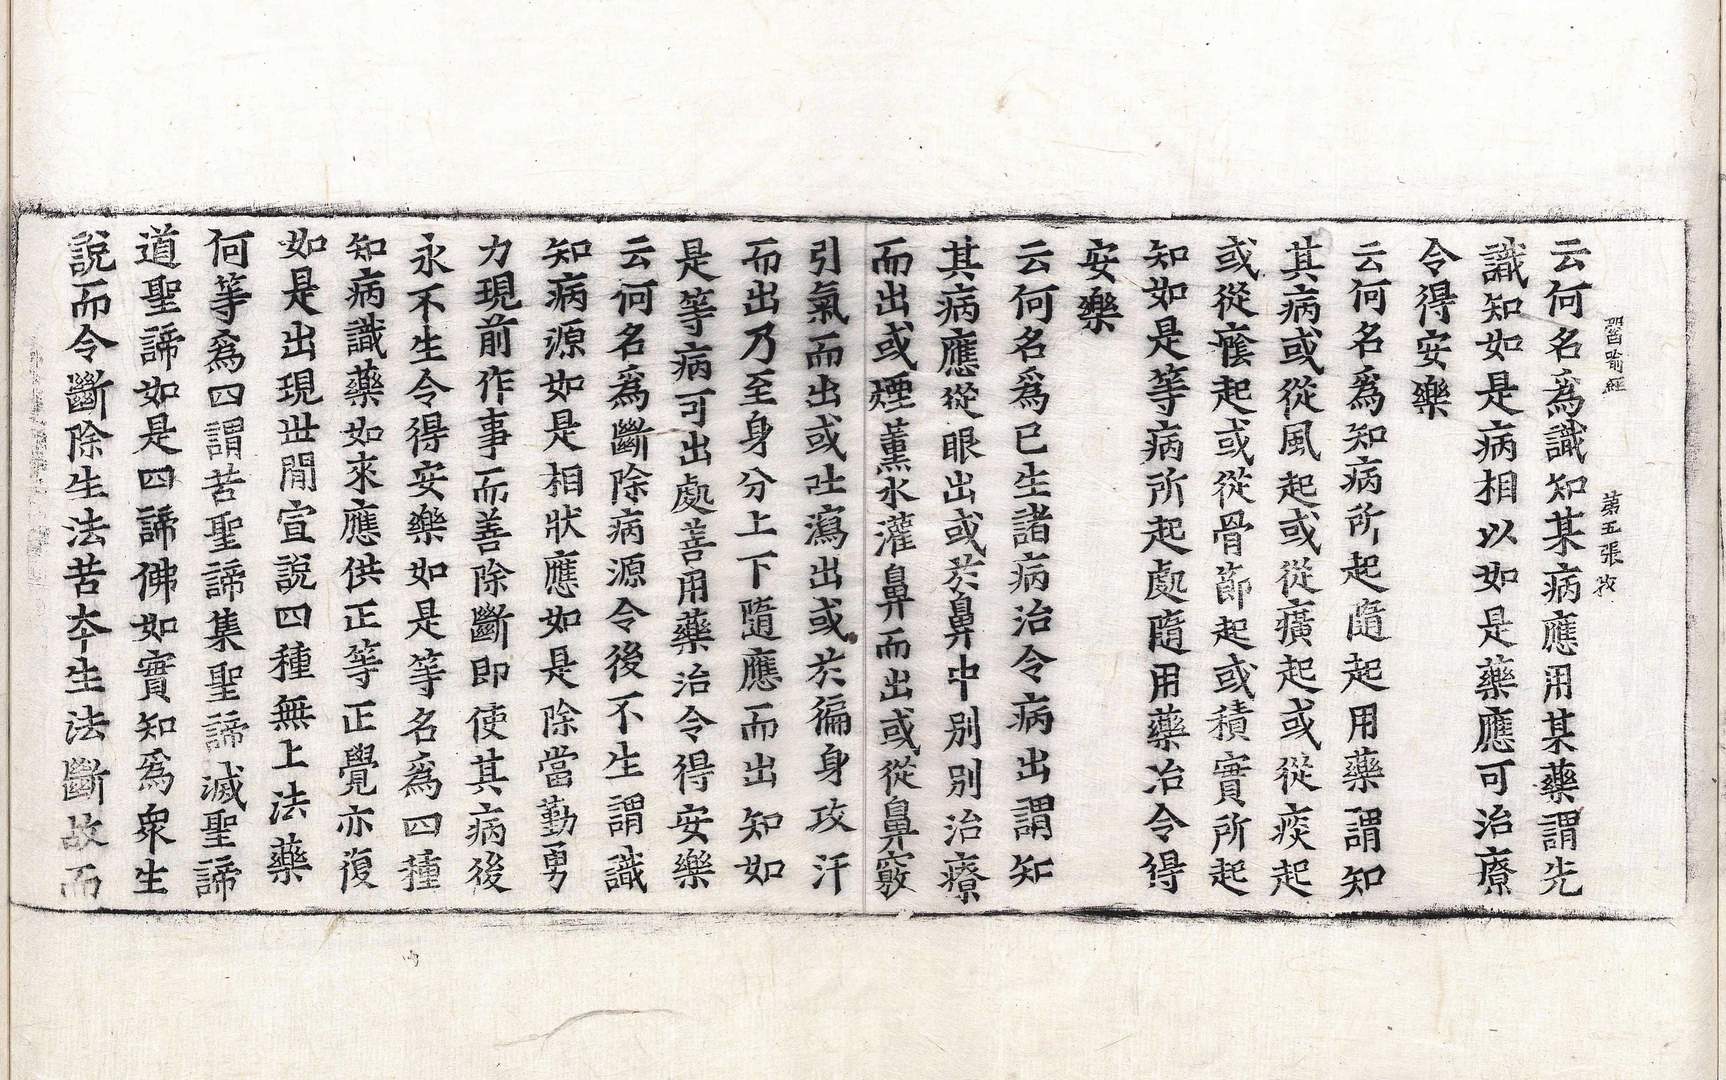 醫喻經 第五張 孜
云何名爲識知某病應用某藥謂先
識知如是病相以如是藥應可治療
令得安樂
云何名爲知病所起隨起用藥謂知
其病或從風起或從癀起或從痰起
或從癊起或從骨節起或積實所起
知如是等病所起處隨用藥治令得
安樂
云何名爲已生諸病治令病出謂知
其病應從眼出或於鼻中別別治療
而出或煙薰水灌鼻而出或從鼻竅
引氣而出或吐瀉出或於徧身攻汗
而出乃至身分上下隨應而出知如
是等病可出處善用藥治令得安樂
云何名爲斷除病源令後不生謂識
知病源如是相狀應如是除當勤勇
力現前作事而善除斷即使其病後
永不生令得安樂如是等名爲四種
知病識藥如來應供正等正覺亦復
如是出現世間宣說四種無上法藥
何等爲四謂苦聖諦集聖諦滅聖諦
道聖諦如是四諦佛如實知爲衆生
說而令斷除生法苦夲生法斷故而